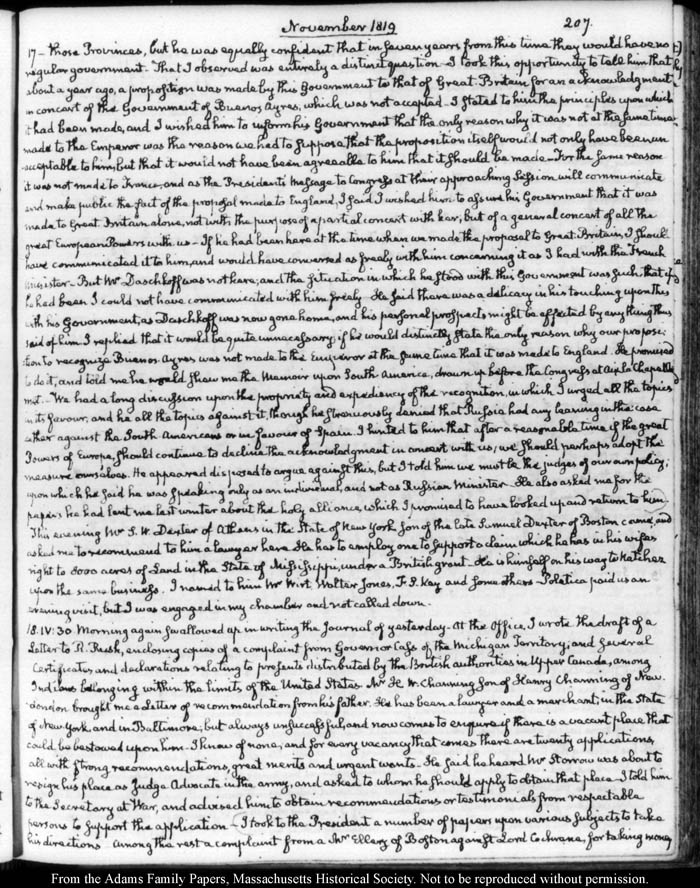 November 1819
207.
17 – those Provinces, but he was equally confident that in seven years from this time they would have no
regular government. That I observed was entirely a distinct question. I took this opportunity to tell him that
about a year ago, a proposition was made by this Government to that of Great-Britain for an acknowledgment
in concert of the Government of Buenos Ayres, which was not accepted. I stated to him the principles upon which
it had been made, and I wished him to inform his Government that the only reason why it was not at the same time
made to the Emperor was the reason we had to suppose that the proposition itself would not only have been un
acceptable to him, but that it would not have been agreeable to him that it should be made. For the same reason
it was not made to France, and as the President's Message to Congress at their approaching Session will communicate
and make public the fact of the proposal made to England, I said I wished him to assure his Government that it was
made to Great Britain alone, not with the purpose of a partial concert with her, but of a general concert of all the
great European Powers with us – If he had been here at the time when we made the proposal to Great Britain, I should
have communicated it to him, and would have conversed as freely with him concerning it as I had with the French
Minister. But Mr Daschkoff was not here; and the situation in which he stood with this Government was such that if
he had been I could not have communicated with him freely. He said there was a delicacy in his touching upon this
with his Government, as Daschkoff was now gone home, and his personal prospects might be affected by any thing thus
said of him. I replied that it would be quite unnecessary if he would distinctly state the only reason why our proposi
tion to recognize Buenos Ayres was not made to the Emperor at the same time that it was made to England. He promised
to do it, and told me he would show me the Memoir upon South America, drawn up before the Congress at Aix la Chapelle
met. – We had a long discussion upon the propriety and expediency of the recognition, in which I urged all the topics
in its favour, and he all the topics against it, though he strenuously denied that Russia had any leaning in the case
either against the South Americans or in favour of Spain. I hinted to him that after a reasonable time if the great
Powers of Europe, should continue to decline the acknowledgment in concert with us, we should perhaps adopt the
measure ourselves. He appeared disposed to argue against this, but I told him we must be the judges of our own policy;
upon which he said he was speaking only as an individual, and not as Russian Minister. He also asked me for the
papers he had lent me last winter about the holy alliance, which I promised to have looked up and return to him.
This evening Mr S. W. Dexter of Athens in the State of New York, Son of the late Samuel Dexter of Boston came, and
asked me to recommend to him a lawyer here. He has to employ one to support a claim which he has in his wife's
right to 8000 acres of Land in the State of Mississippi, under a British grant. He is himself on his way to Natchez
upon the same business. I named to him Mr Wirt, Walter Jones, F. S. Key and some others – Poletica paid us an
evening visit, but I was engaged in my chamber and not called down.
18. IV: 30 Morning again swallowed up in writing the Journal of yesterday. At the Office, I wrote the draft of a
Letter to R. Rush, enclosing copies of a complaint from Governor Cass of the Michigan Territory; and several
Certificates and declarations relating to presents distributed by the British authorities in Upper Canada, among
Indians belonging within the limits of the United States. Mr H. W. Channing Son of Henry Channing of New
London brought me a letter of recommendation from his father. He has been a lawyer and a merchant, in the State
of New York, and in Baltimore; but always unsuccessful, and now comes to enquire if there is a vacant place that
could be bestowed upon him. I know of none, and for every vacancy that comes there are twenty applications,
all with strong recommendations, great merits and urgent wants. He said he heard Mr Storrow was about to
resign his place as Judge Advocate in the army, and asked to whom he should apply to obtain that place. I told him
to the Secretary at War, and advised him to obtain recommendations or testimonials from respectable
persons to support the application – I took to the President a number of papers upon various subjects to take
his directions. Among the rest a complaint from a Ellery of Boston against Lord Cochrane, for taking money
From the Adams Family Papers, Massachusetts Historical Society. Not to be reproduced without permission.